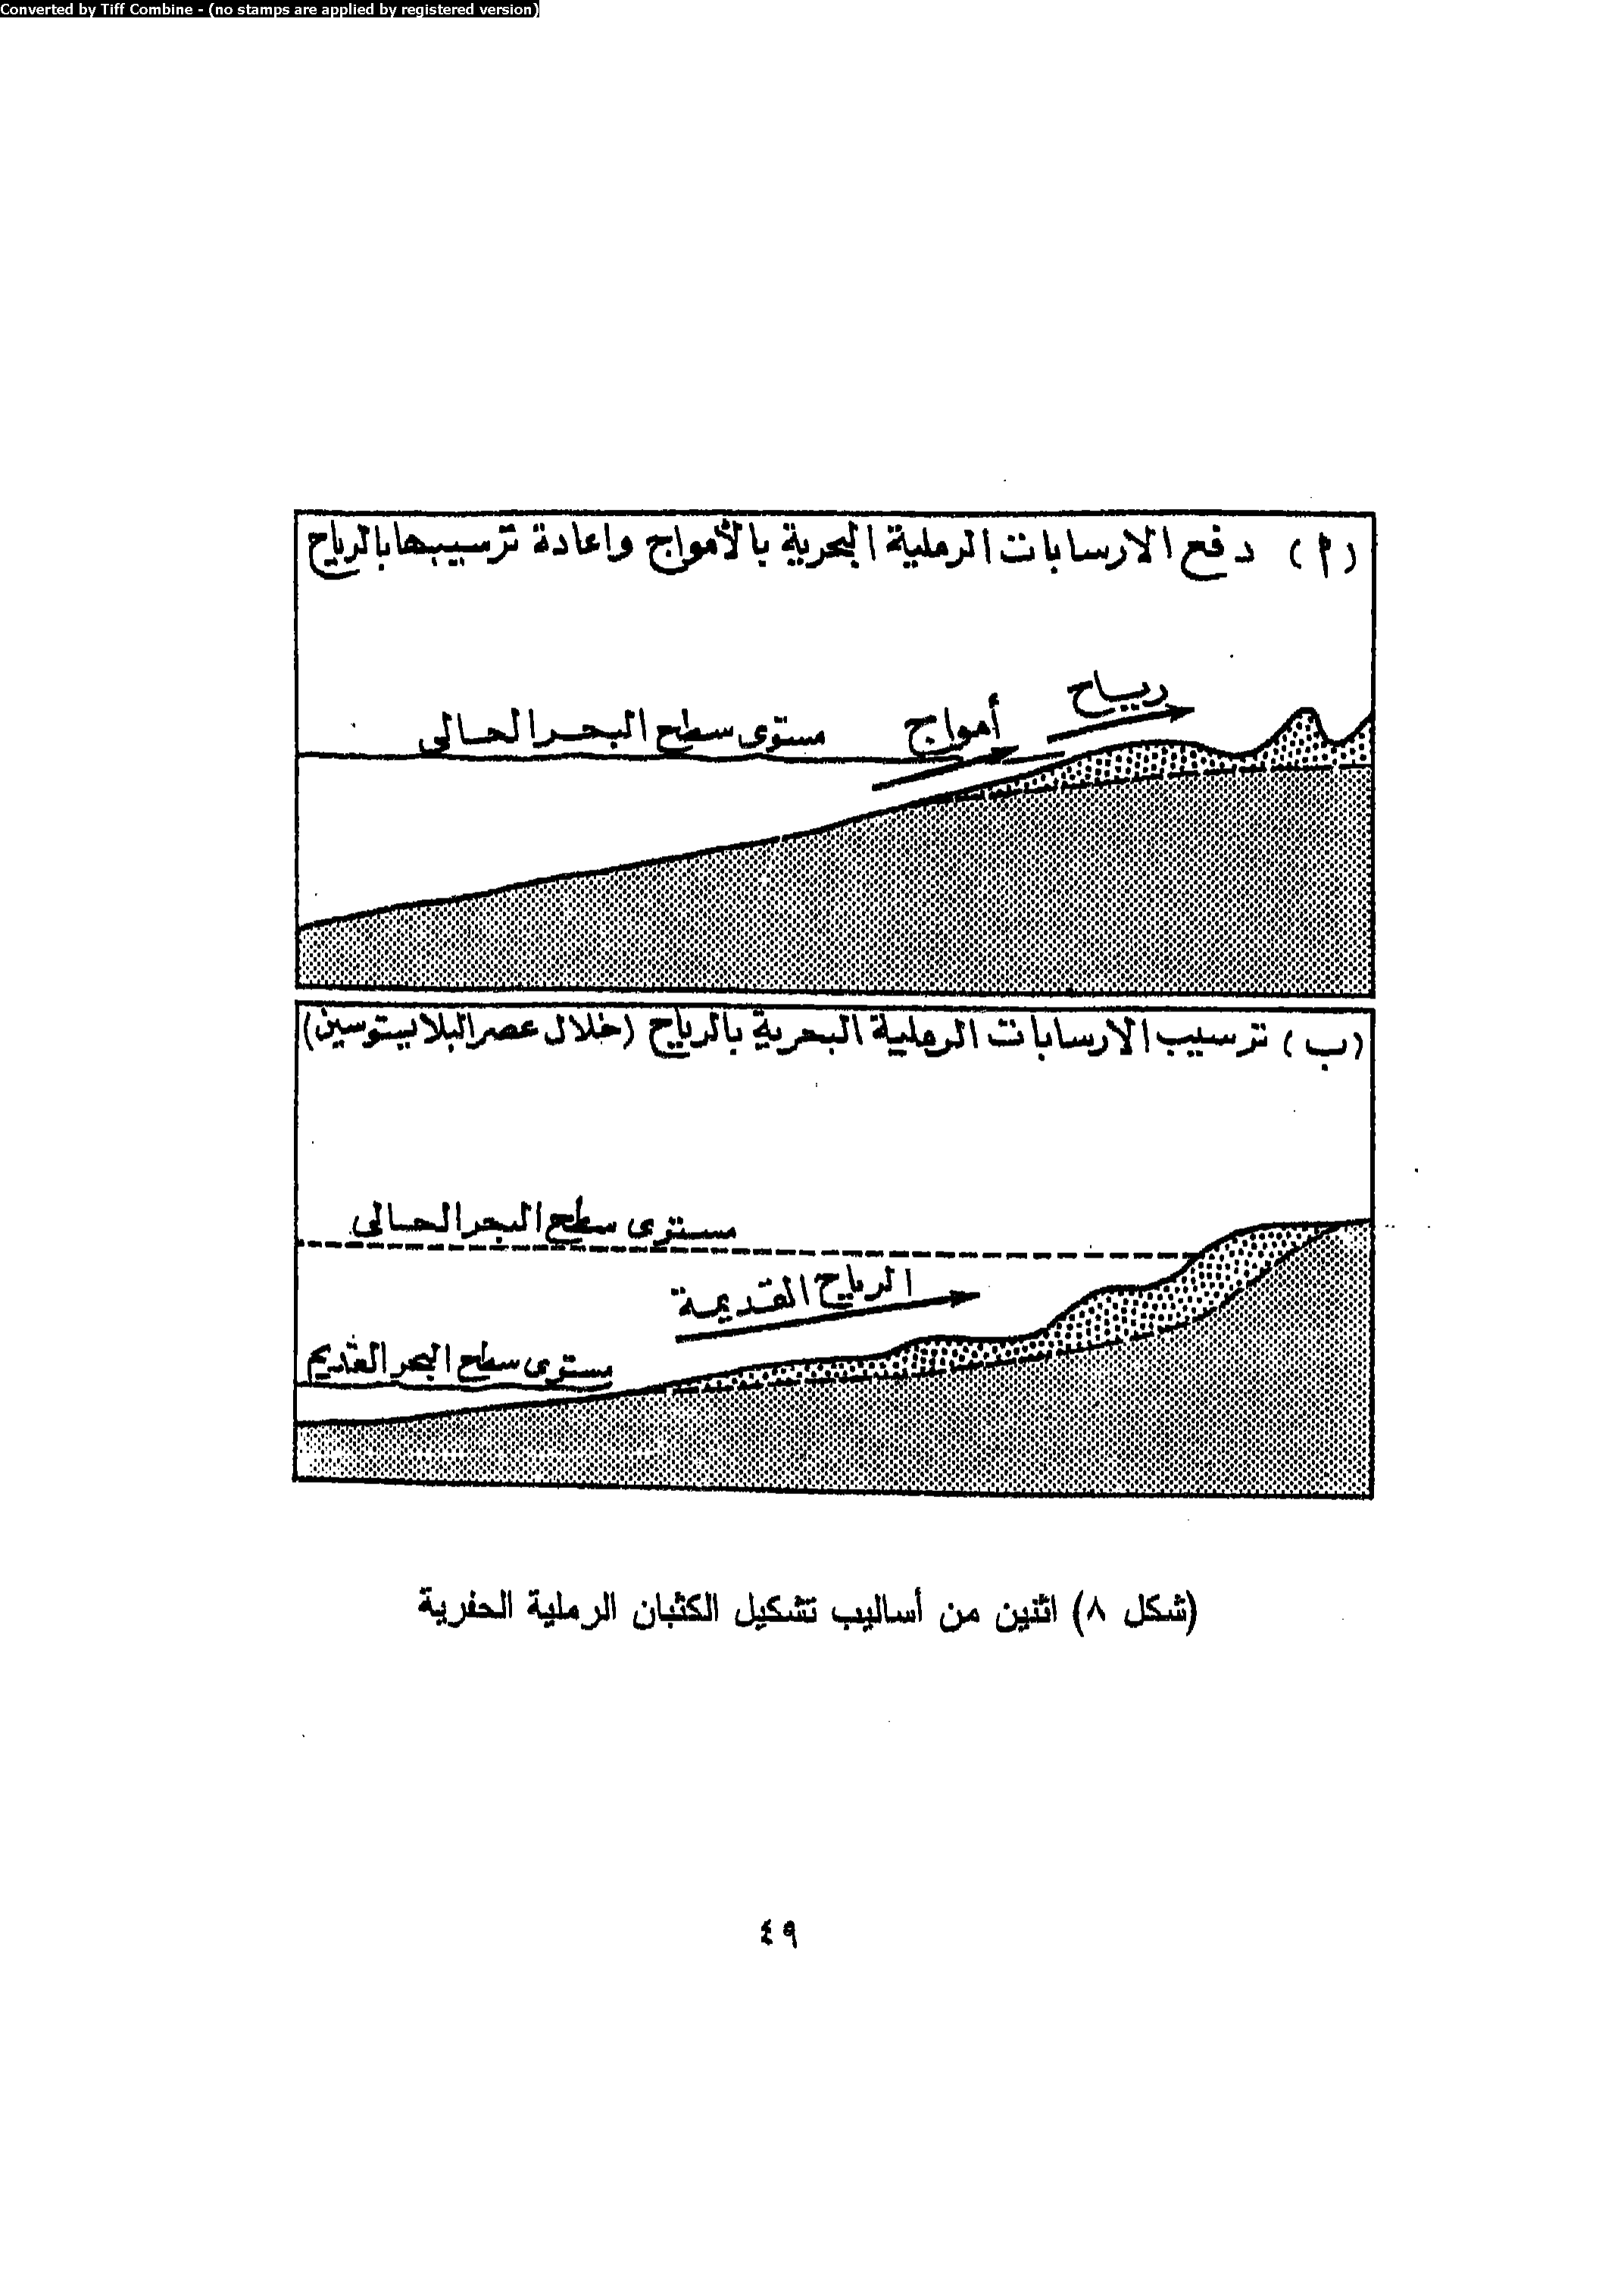 Converted by Tiff Combine - (no stamps are applied by registered version)
(أ) دفع الارسابات الرملية البحرية بالأمواج واعادة ترسيبها بالرياح
رياح
أمواج
مستوى سطح البحر الحالى
(ب) ترسيب الارسابات الرملية البحرية بالرياح (خلال عصر البلايستوسين)
مستوى سطح البحر الحالى
الرياح القديمة
مستوى سطح البحر القديم
(شكل ٨) اثنين من أساليب تشكيل الكثبان الرملية الحفرية
٤٩